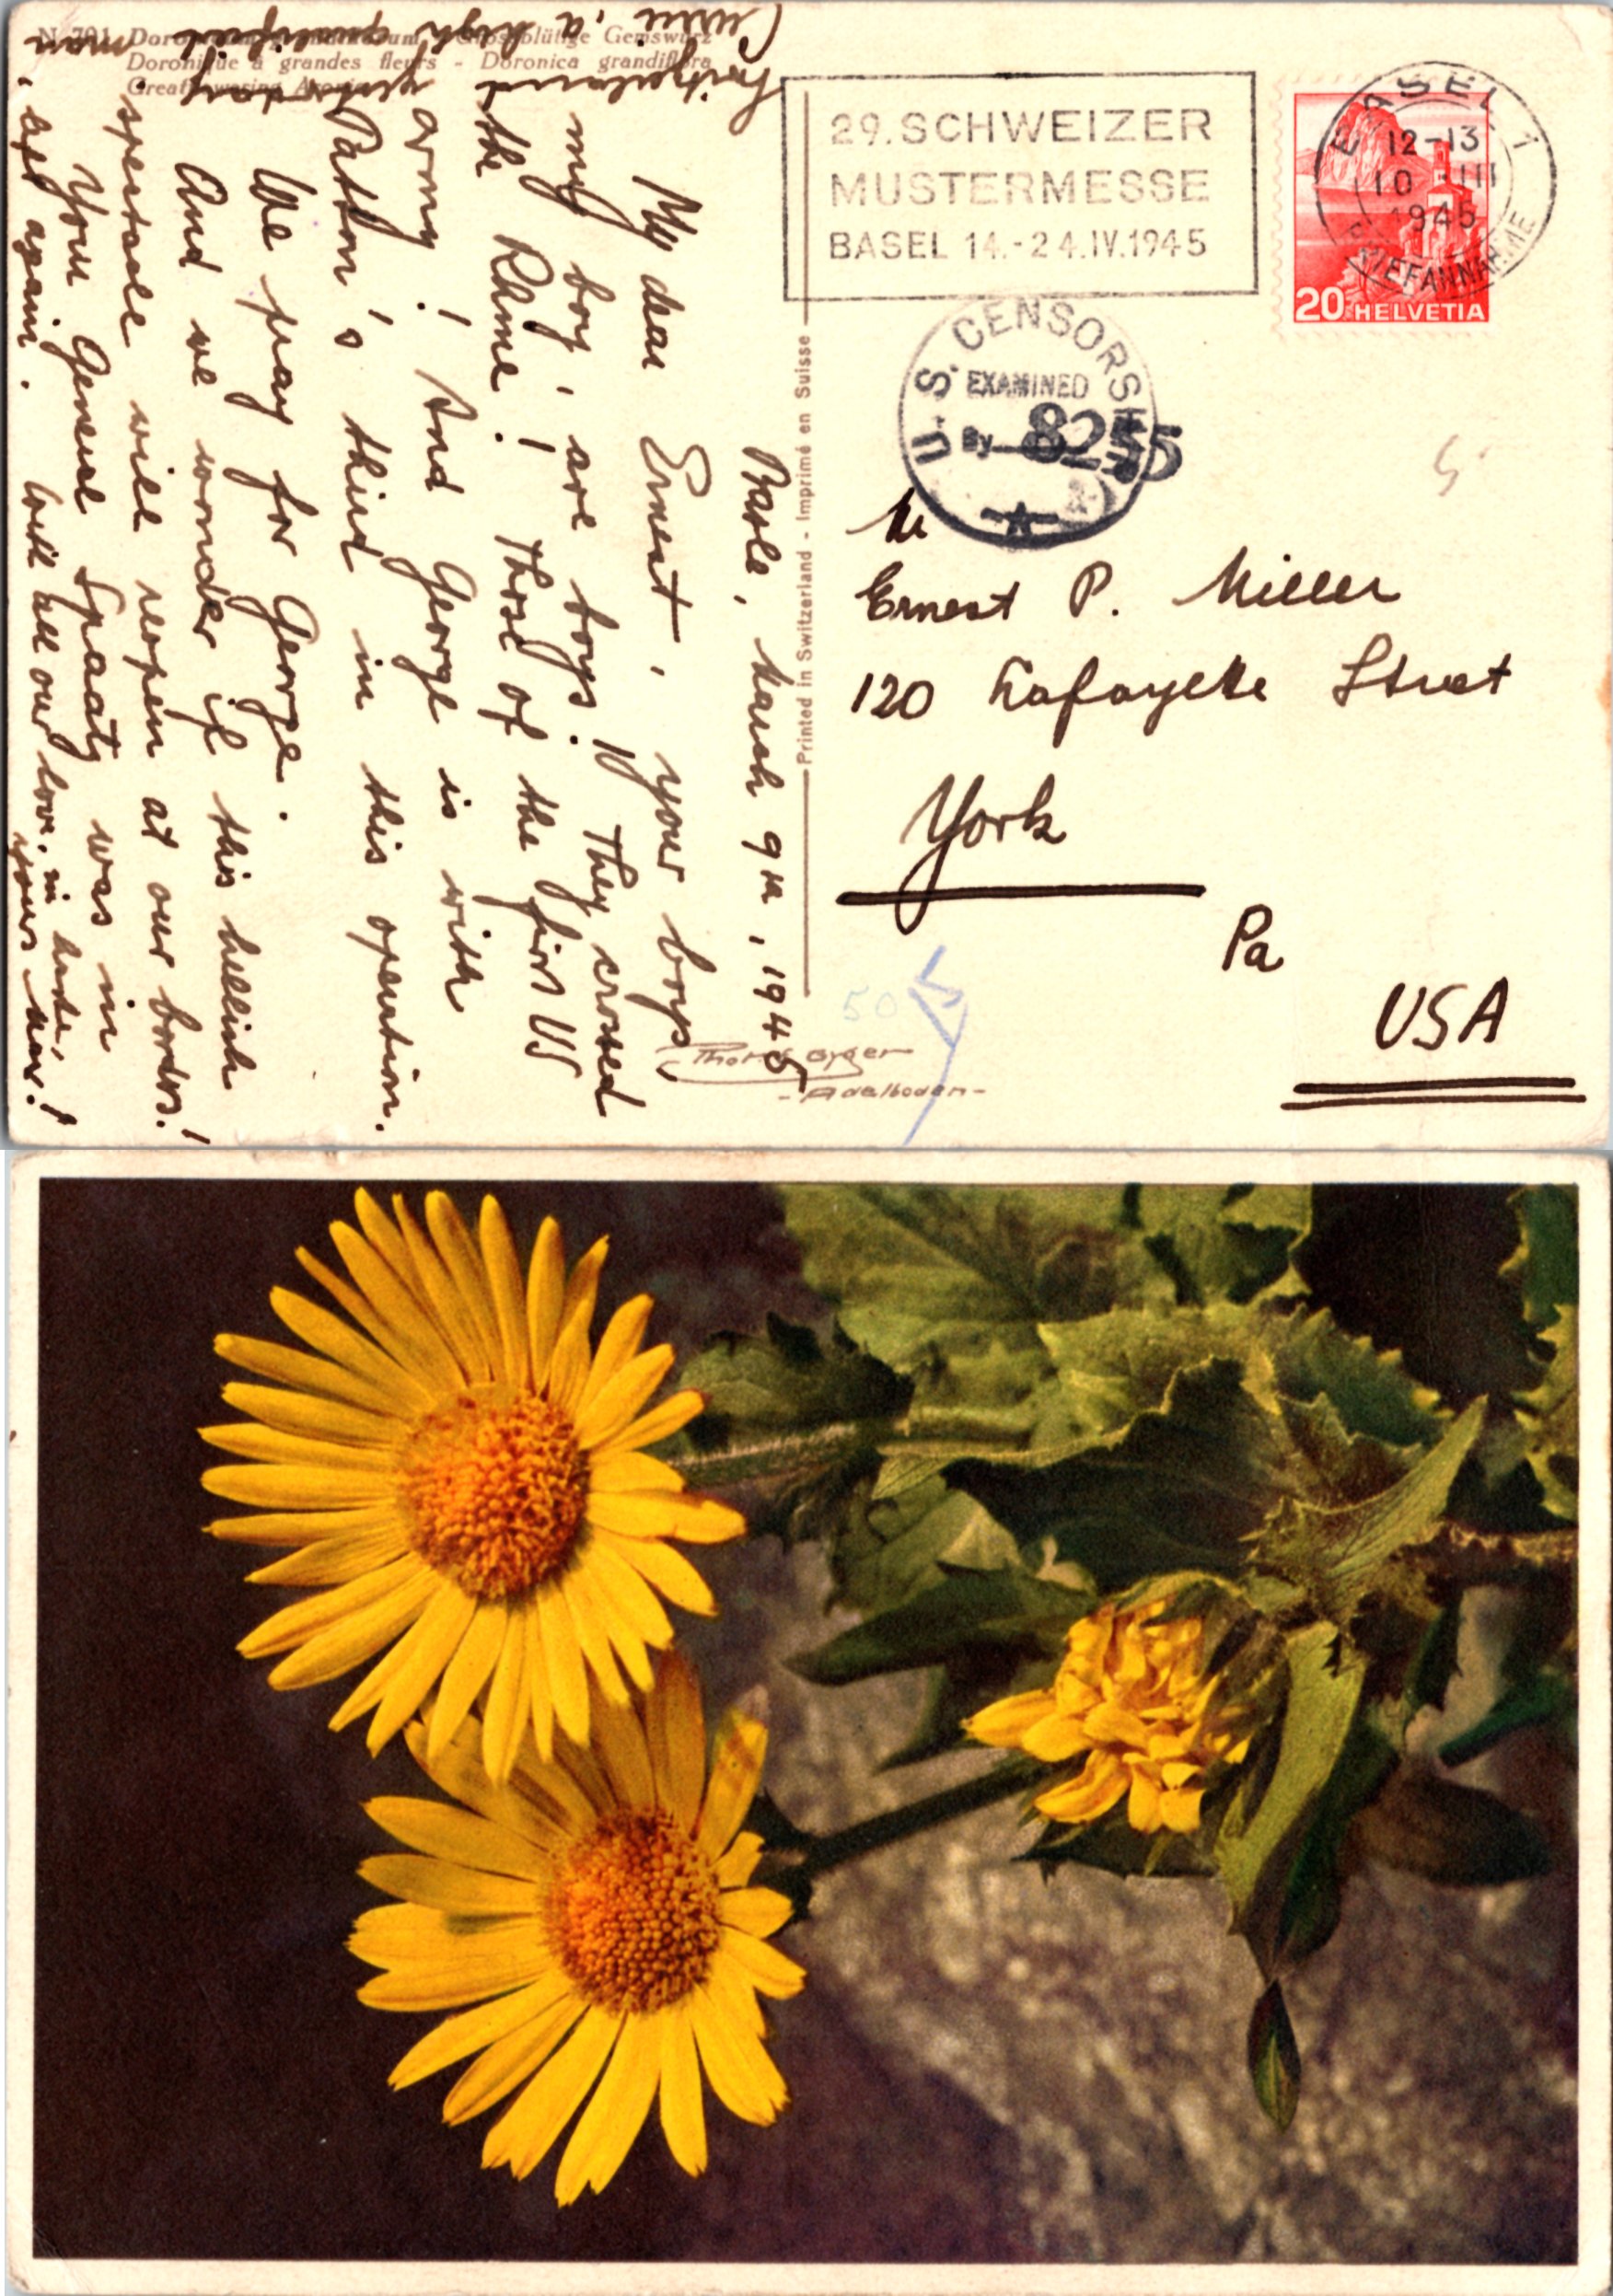 N° 701 Doronicum grandiflorum - Grossblütige Gemswurz
Doronique à grandes fleurs - Doronica grandiflora
Great flowering Arnica
29. SCHWEIZER
MUSTERMESSE
BASEL 14.-24.IV.1945
BASEL 1
12-13
10.III
1945
BRIEFANNAHME
20 HELVETIA
U.S. CENSORSHIP
EXAMINED
By 8255
Mr
Ernest P. Miller
120 Lafayette Street
York
Pa
USA
50
Printed in Switzerland - Imprimé en Suisse
Thor E Gyger
- Adelboden -
Basle, March 9th, 1945
My dear Ernest, your boys,
my boy, are boys! They crossed
the Rhine! Those of the first US
army! And George is with
Patton's third in this operation.
We pray for George.
And we wonder if this hellish
spectacle will reopen at our borders!
Your General Spaatz was in
Switzerland yesterday
Curie, a high qualified man
, left again. With all our love, in haste,
yours Max!